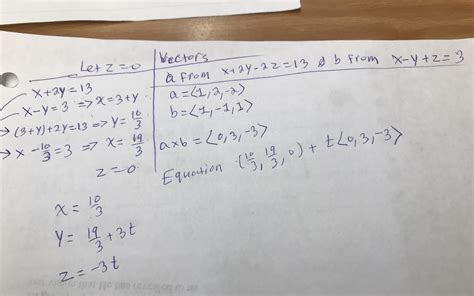 Let z = 0
x + 2y = 13
x - y = 3 => x = 3 + y
→ (3+y) + 2y = 13 => y = 10/3
→ x - 10/3 = 3 => x = 19/3
z = 0
x = 10/3
y = 19/3 + 3t
z = -3t
Vectors
a from x + 2y - 2z = 13 & b from x - y + z = 3
a = <1, 2, -2>
b = <1, -1, 1>
a x b = <0, 3, -3>
Equation (10/3, 19/3, 0) + t<0, 3, -3>